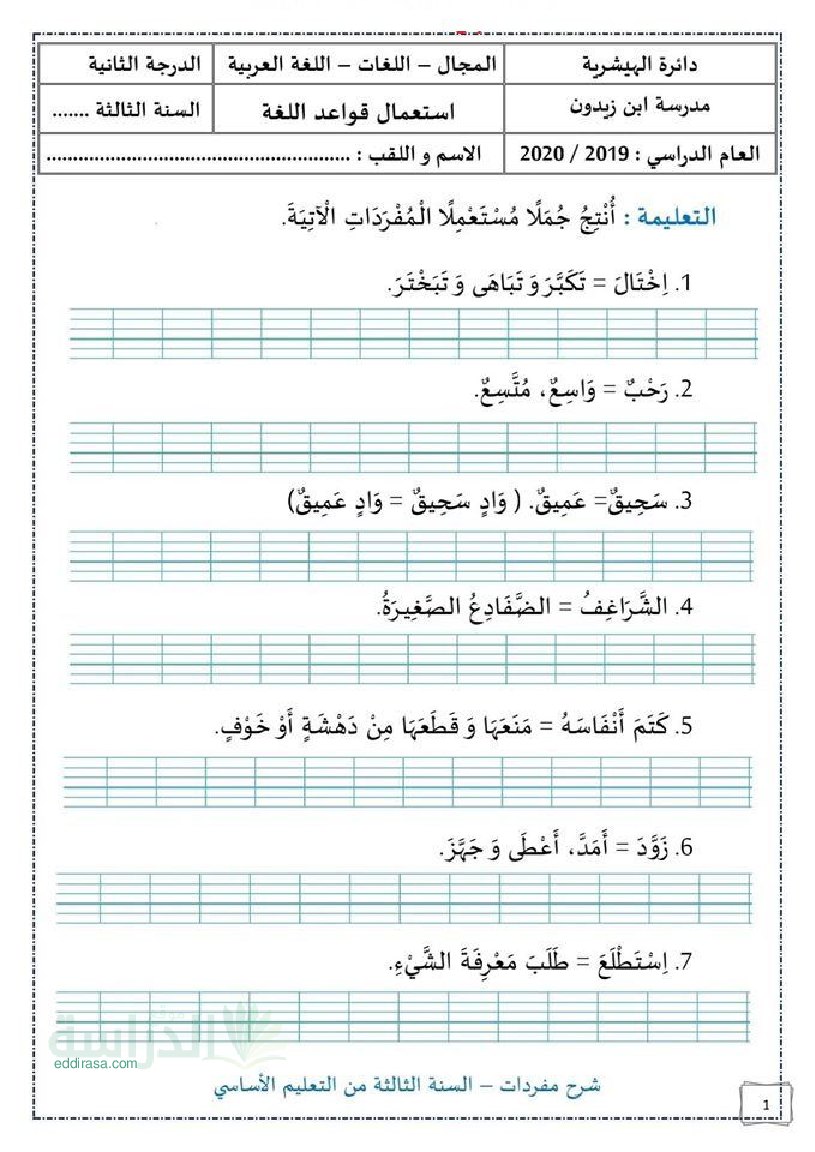 دائرة الهيشرية
المجال – اللغات – اللغة العربية
الدرجة الثانية
مدرسة ابن زيدون
استعمال قواعد اللغة
السنة الثالثة .......
العام الدراسي : 2019 / 2020
الاسم و اللقب : ........................................................
التعليمة : أُنْتِجُ جُمَلًا مُسْتَعْمِلًا الْمُفْرَدَاتِ الْآتِيَةَ.
1. اِخْتَالَ = تَكَبَّرَ وَ تَبَاهَى وَ تَبَخْتَرَ.
2. رَحْبٌ = وَاسِعٌ، مُتَّسِعٌ.
3. سَحِيقٌ= عَمِيقٌ. ( وَادٍ سَحِيقٌ = وَادٍ عَمِيقٌ)
4. الشَّرَاغِفُ = الضَّفَادِعُ الصَّغِيرَةُ.
5. كَتَمَ أَنْفَاسَهُ = مَنَعَهَا وَ قَطَعَهَا مِنْ دَهْشَةٍ أَوْ خَوْفٍ.
6. زَوَّدَ = أَمَدَّ، أَعْطَى وَ جَهَّزَ.
7. اِسْتَطْلَعَ = طَلَبَ مَعْرِفَةَ الشَّيْءِ.
موقع
الدراسة
eddirasa.com
شرح مفردات – السنة الثالثة من التعليم الأساسي
1